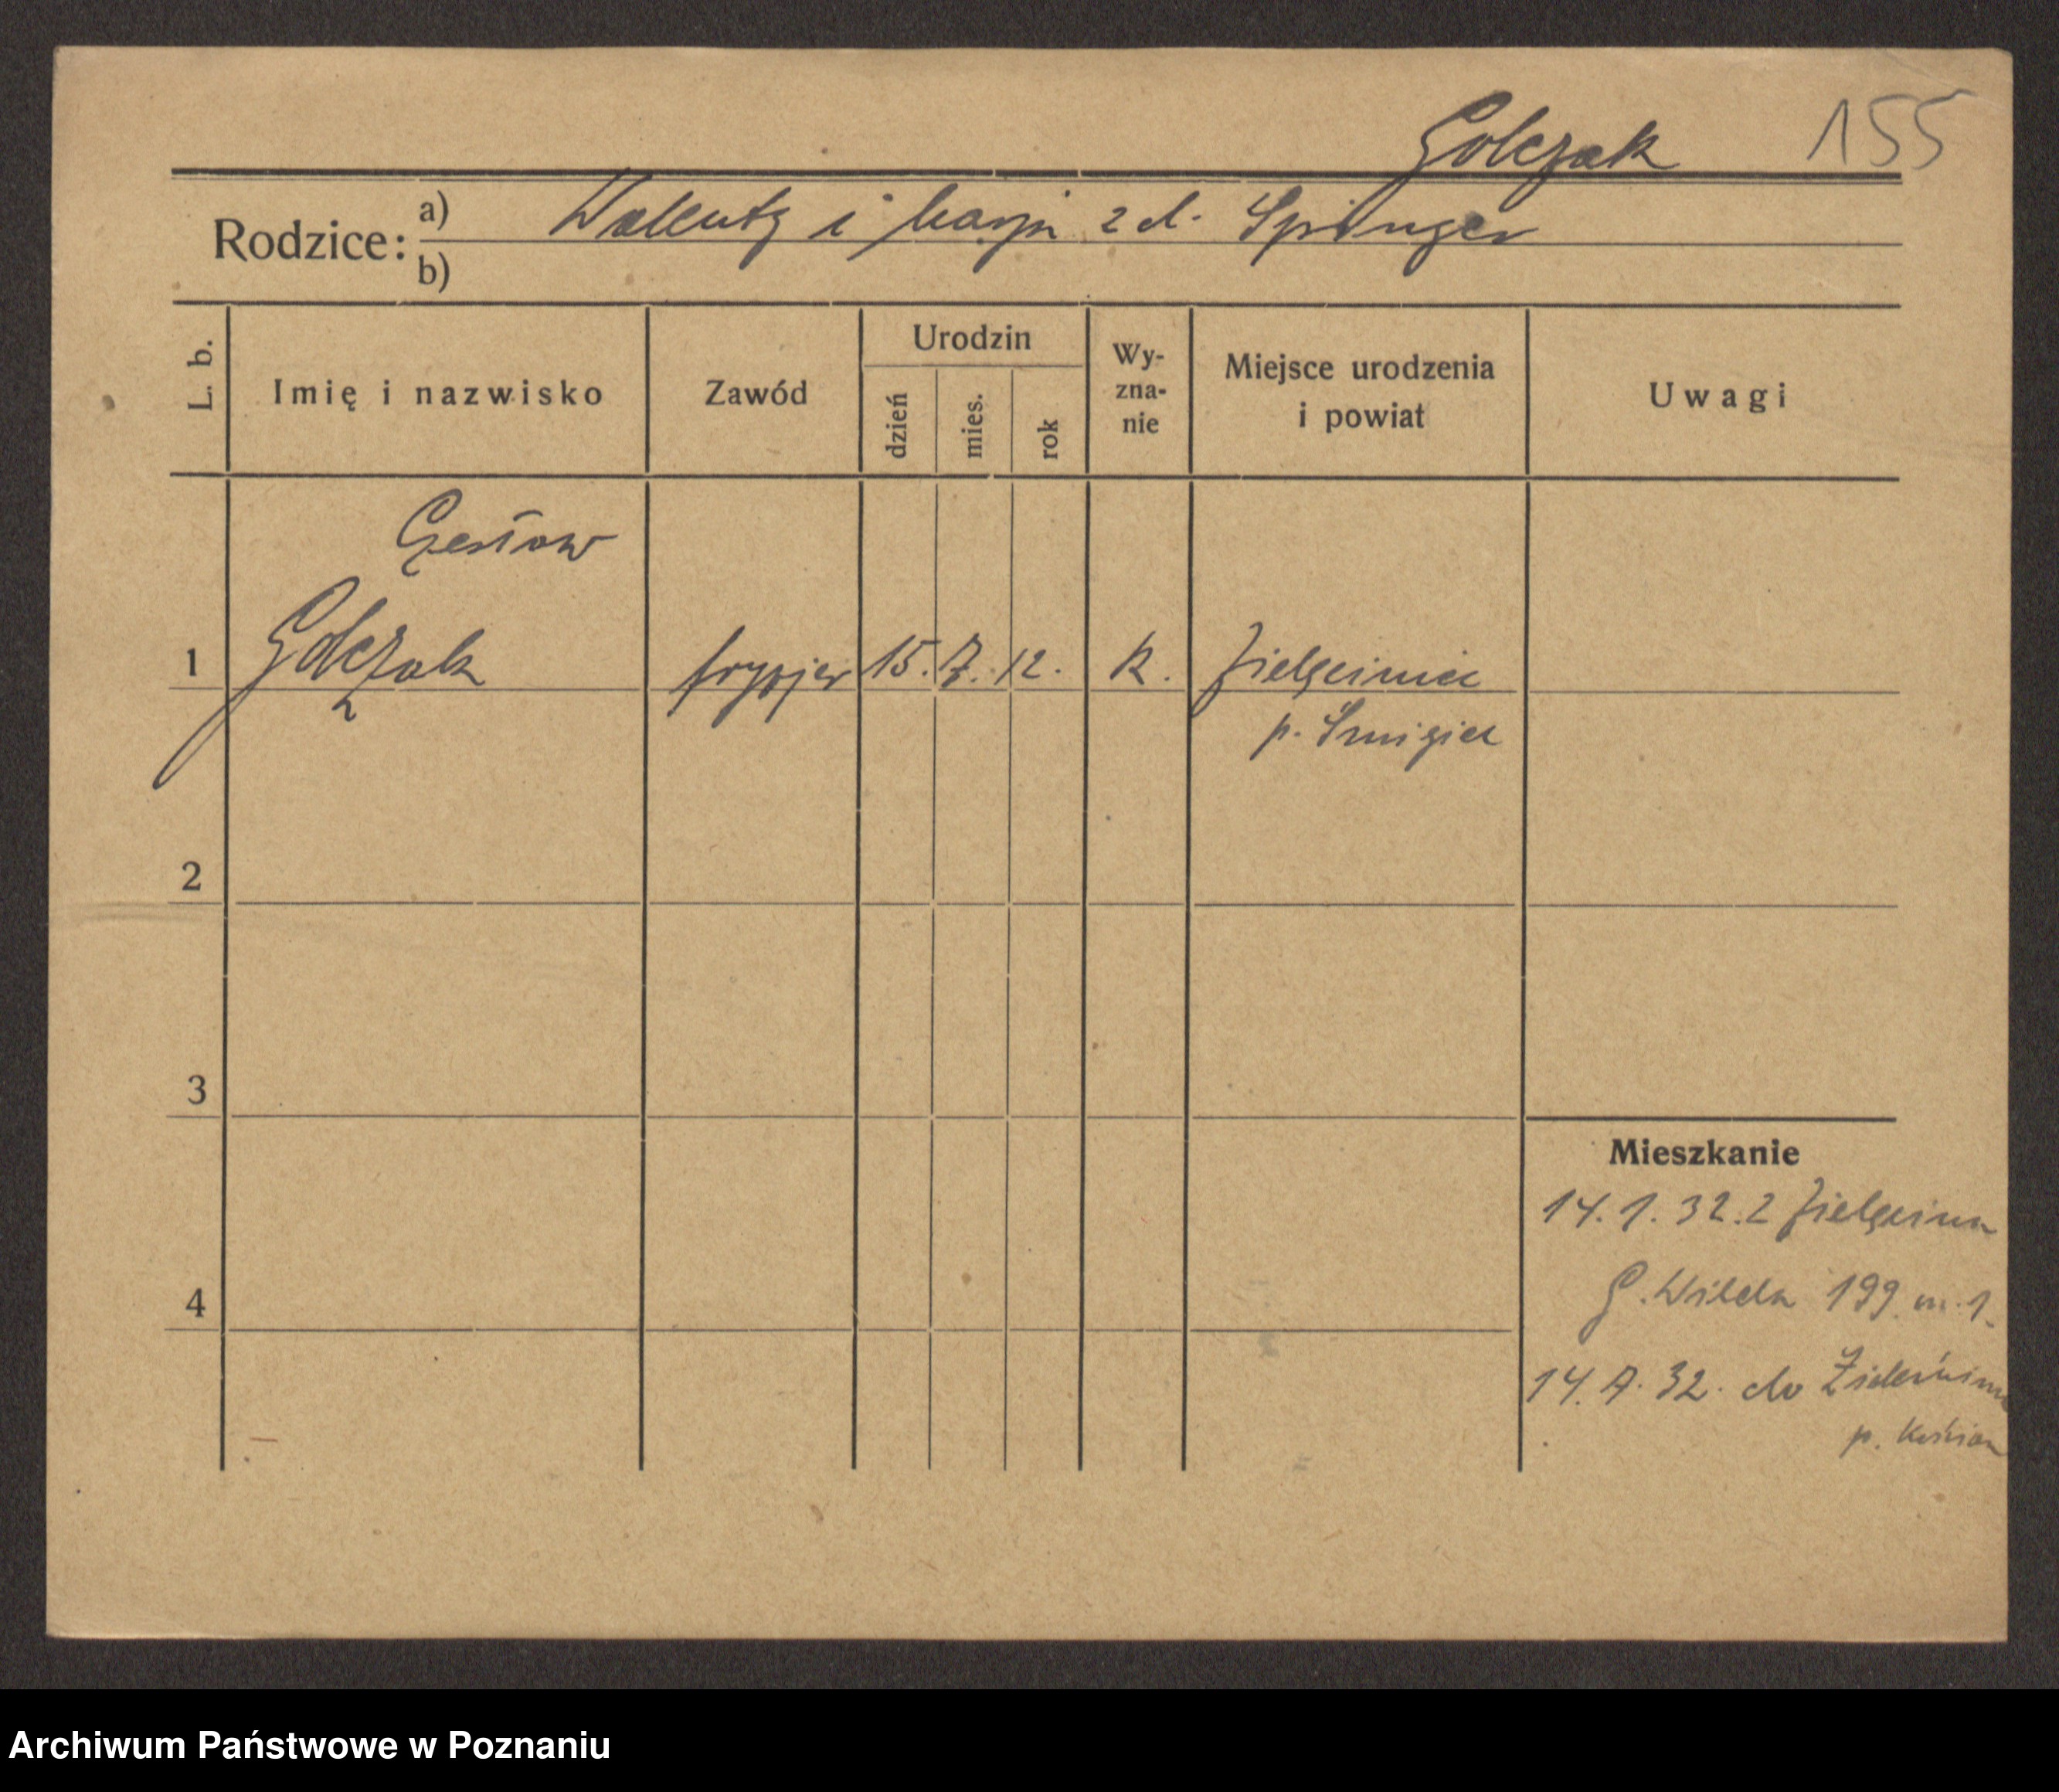 Golczak 155
Rodzice: a) Walenty i Marja z d. Springer
b)
L. b. Imię i nazwisko Zawód Urodzin dzień mies. rok Wy-zna-nie Miejsce urodzenia i powiat Uwagi
Czesław
1 Golczak fryzjer 15. 7. 12. k.
p. Śmigiel
2
3
Mieszkanie
14. 1. 32. z
4 G. Wilda 199 m. 1.
14. 7. 32. do
p. Kościan
Archiwum Państwowe w Poznaniu